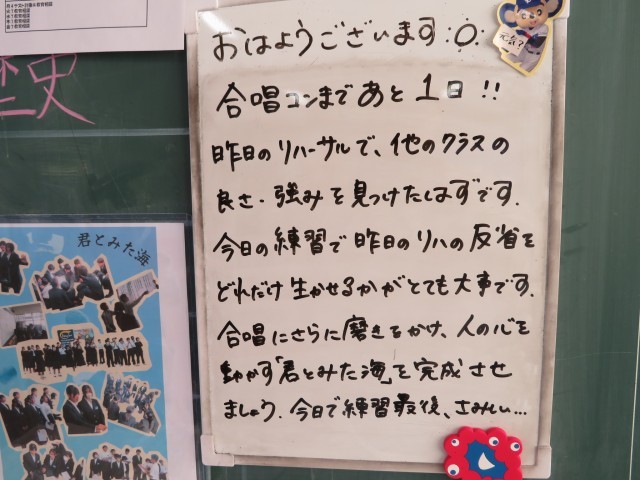 歴史
君とみた海
おはようございます
合唱コンまであと1日!!
昨日のリハーサルで、他のクラスの
良さ・強みを見つけたはずです.
今日の練習で昨日のリハの反省を
どれだけ生かせるかがとても大事です.
合唱にさらに磨きをかけ、人の心を
動かす「君とみた海」を完成させ
ましょう.今日で練習最後、さみしい…
元気?